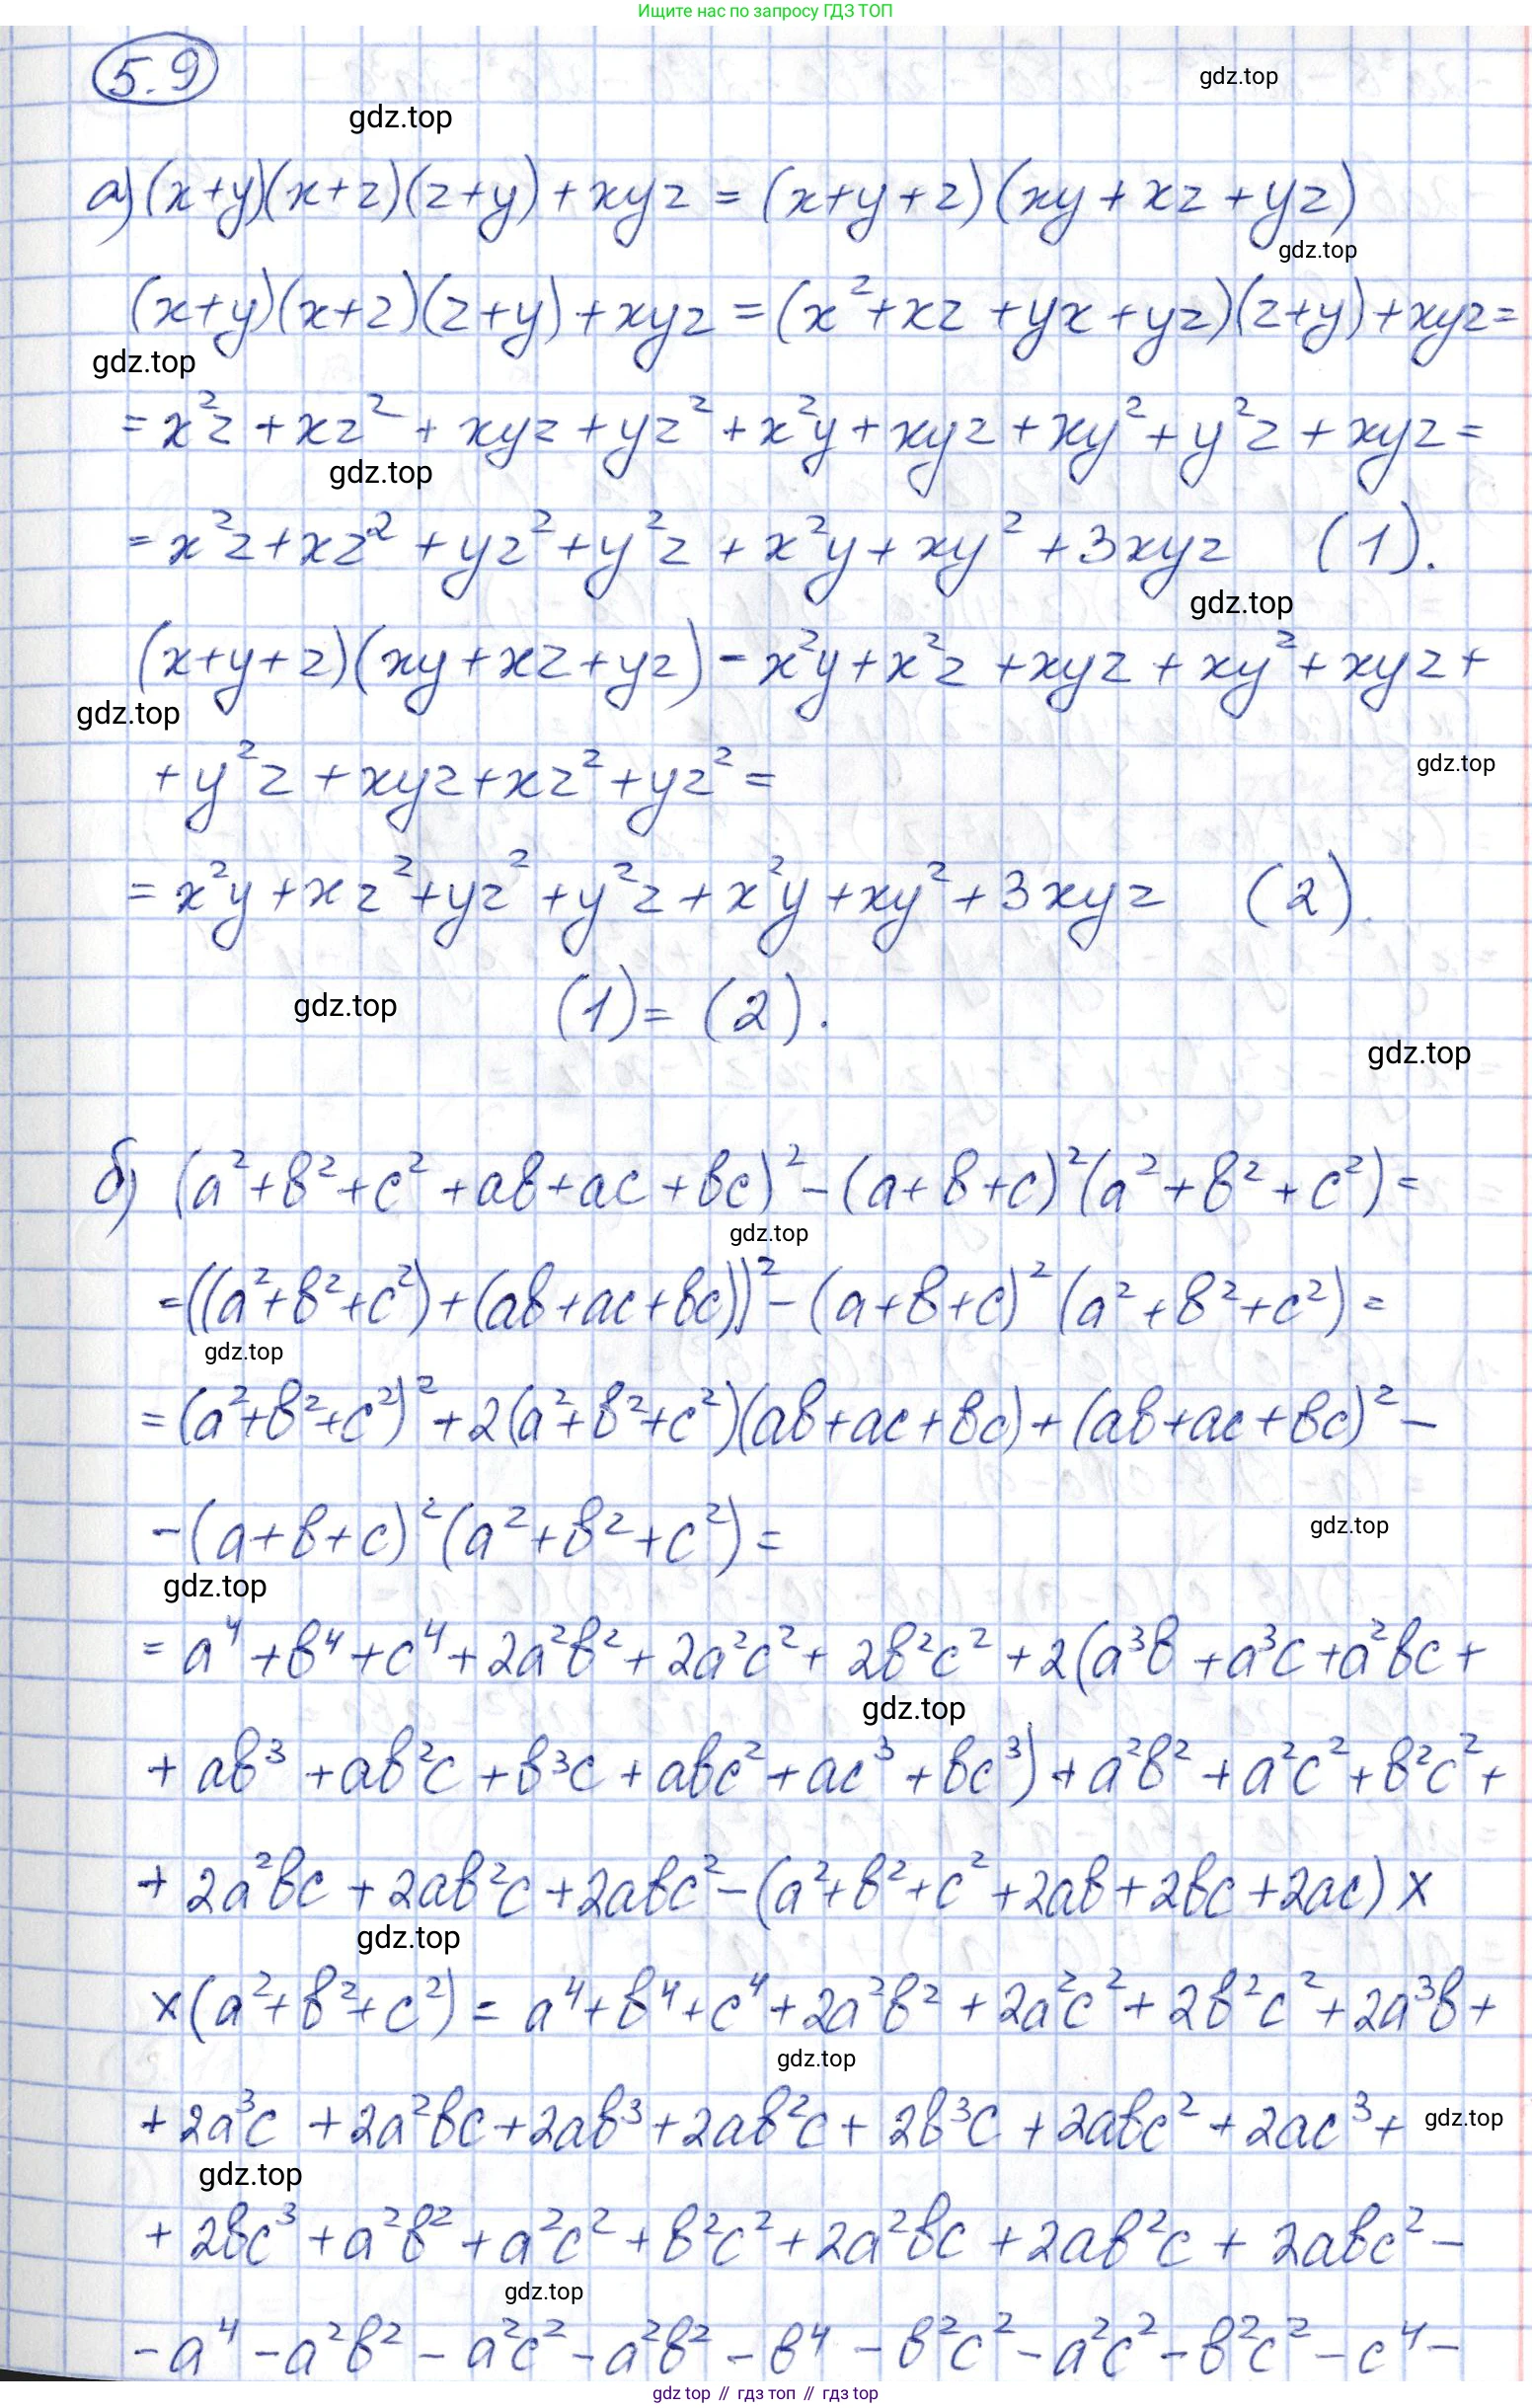 Ищите нас по запросу ГДЗ ТОП
5.9
gdz.top
gdz.top
а) (x+y)(x+z)(z+y)+xyz = (x+y+z)(xy+xz+yz)
gdz.top
(x+y)(x+z)(z+y)+xyz = (x²+xz+yx+yz)(z+y)+xyz =
gdz.top
= x²z+xz²+xyz+yz²+x²y+xyz+xy²+y²z+xyz =
gdz.top
= x²z+xz²+yz²+y²z+x²y+xy²+3xyz (1).
gdz.top
(x+y+z)(xy+xz+yz) - x²y+x²z+xyz+xy²+xyz+
gdz.top
+y²z+xyz+xz²+yz² =
gdz.top
= x²y+xz²+yz²+y²z+x²y+xy²+3xyz (2).
gdz.top
(1) = (2).
gdz.top
б) (a²+b²+c²+ab+ac+bc)²-(a+b+c)²(a²+b²+c²) =
gdz.top
=((a²+b²+c²)+(ab+ac+bc))²-(a+b+c)²(a²+b²+c²) =
gdz.top
= (a²+b²+c²)²+2(a²+b²+c²)(ab+ac+bc)+(ab+ac+bc)²-
-(a+b+c)²(a²+b²+c²) =
gdz.top
gdz.top
= a⁴+b⁴+c⁴+2a²b²+2a²c²+2b²c²+2(a³b+a³c+a²bc+
gdz.top
+ab³+ab²c+b³c+abc²+ac³+bc³)+a²b²+a²c²+b²c²+
+2a²bc+2ab²c+2abc²-(a²+b²+c²+2ab+2bc+2ac)×
gdz.top
×(a²+b²+c²) = a⁴+b⁴+c⁴+2a²b²+2a²c²+2b²c²+2a³b+
gdz.top
+2a³c+2a²bc+2ab³+2ab²c+2b³c+2abc²+2ac³+
gdz.top
gdz.top
+2bc³+a²b²+a²c²+b²c²+2a²bc+2ab²c+2abc²-
gdz.top
-a⁴-a²b²-a²c²-a²b²-b⁴-b²c²-a²c²-b²c²-c⁴-
gdz top // гдз топ // гдз top